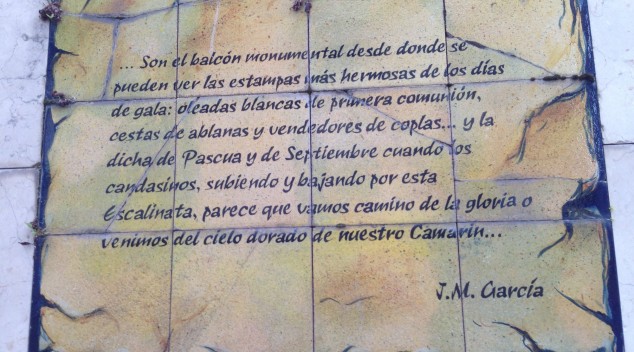 ... Son el balcón monumental desde donde se
pueden ver las estampas más hermosas de los días
de gala: oleadas blancas de primera comunión,
cestas de ablanas y vendedores de coplas... y la
dicha de Pascua y de Septiembre cuando los
candasinos, subiendo y bajando por esta
Escalinata, parece que vamos camino de la gloria o
venimos del cielo dorado de nuestro Camarín...
J.M. García